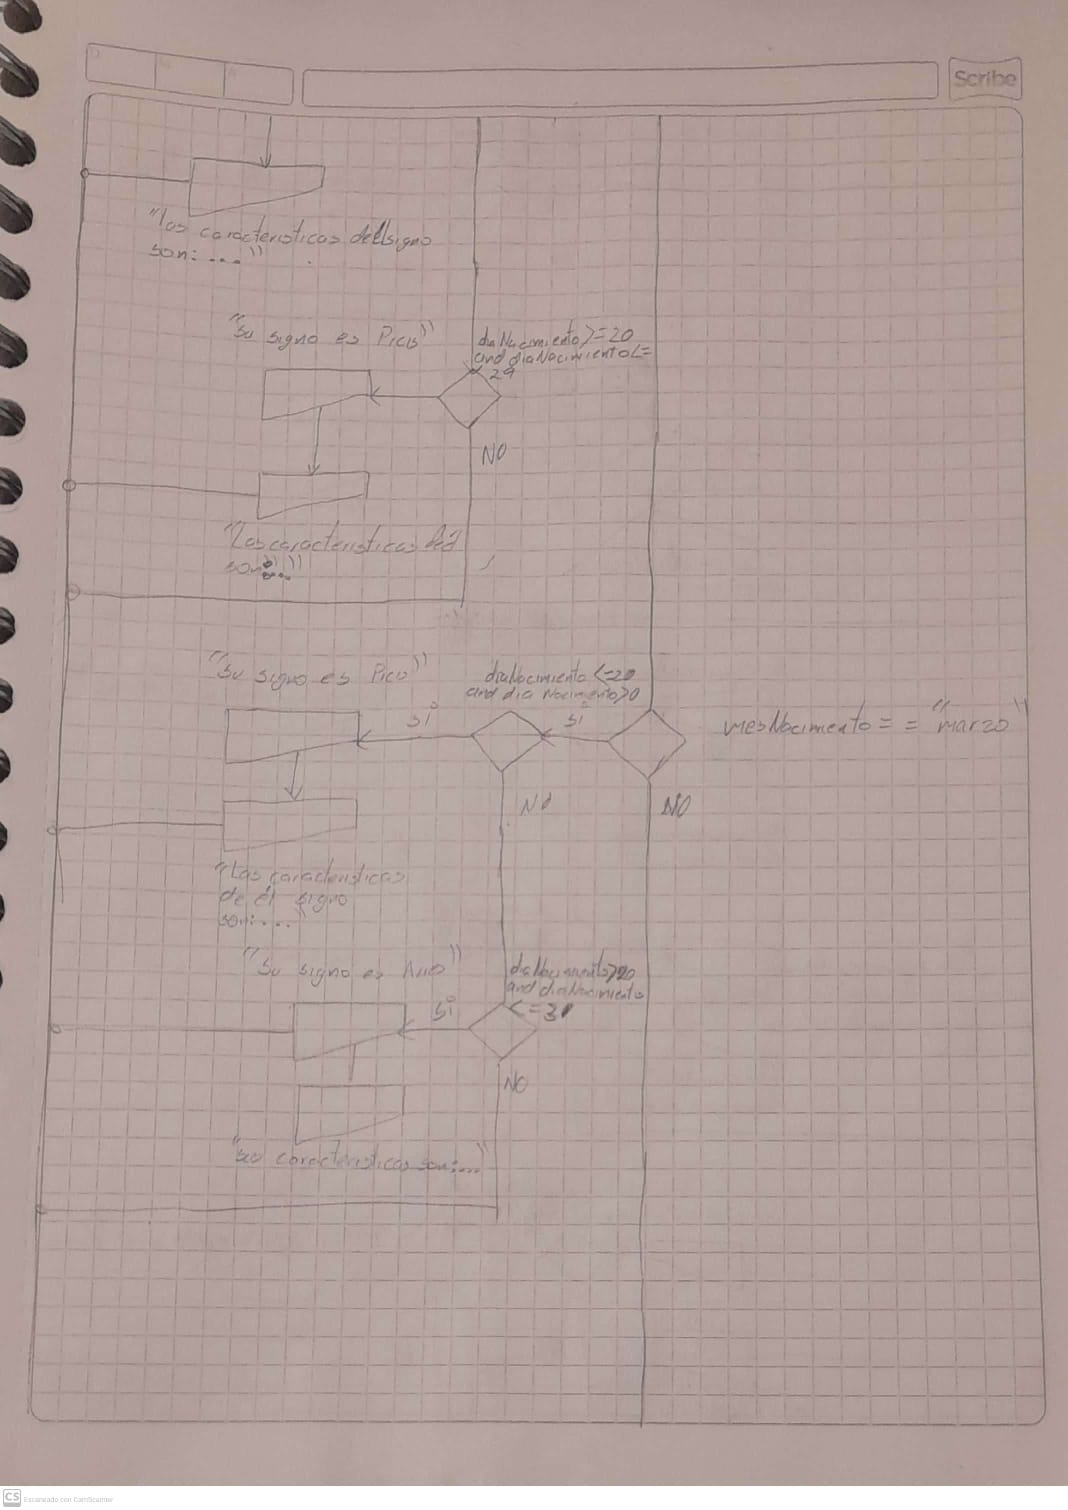 Scribe
"las caracteristicas del signo
son: ...."
"Su signo es Picis"
diaNacimiento>=20
and diaNacimiento<=
29
NO
"Las caracteristicas del
son:..."
"Su signo es Pico"
diaNacimiento <=20
and dia Nacimiento>0
si
si
mesNacimiento = = "marzo"
NO
NO
"Las caracteristicas
de él signo
son: ...."
"Su signo es
diaNacimiento>20
and diaNacimiento
<=31
si
NO
"sus caracteristicas son:...."
CS Escaneado con CamScanner